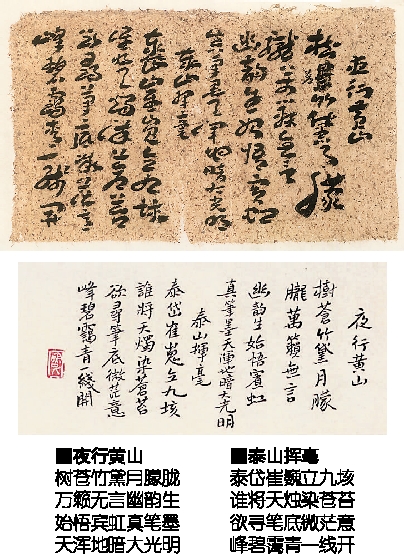 夜行黄山
朧萬籟無言
幽韵生始悟賓虹
真筆墨天渾地暗大光明
泰山揮毫
泰岱崔嵬立九垓
誰將天燭染蒼苔
欲尋筆底微茫意
峰碧靄青一綫開
夜行黄山
樹蒼竹黛月朦
朧萬籟無言
幽韵生始悟賓虹
真筆墨天渾地暗大光明
泰山揮毫
泰岱崔嵬立九垓
誰將天燭染蒼苔
欲尋筆底微茫意
峰碧靄青一綫開
■夜行黄山
树苍竹黛月朦胧
万籁无言幽韵生
始悟宾虹真笔墨
天浑地暗大光明
■泰山挥毫
泰岱崔巍立九垓
谁将天烛染苍苔
欲寻笔底微茫意
峰碧霭青一线开